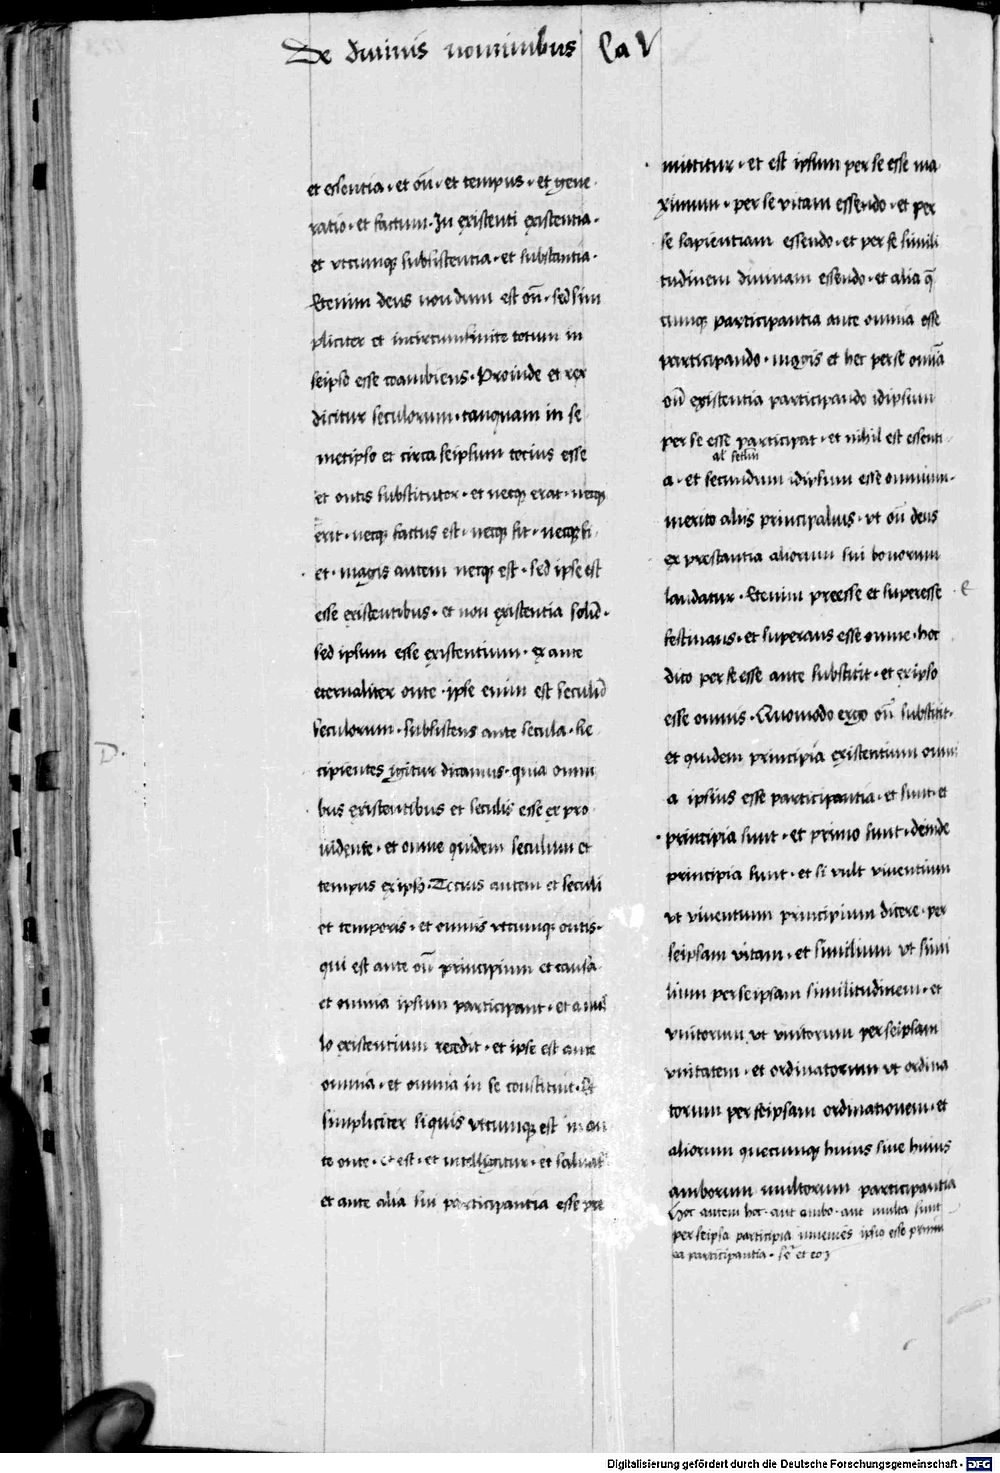 De diuinis nominibus Ca V
et essentia · et on̄ · et tempus · et gene
ratio · et factum · In existenti existentia ·
et vtcunqꝫ subsistentia · et substantia ·
Etenim deus non dum est on̄ · sed sim
pliciter et incircumfinite totum in
seipso esse coambiens · Proinde et rex
dicitur seculorum · tanquam in se
metipso et circa seipsum tocius esse
et ontis substitutor · et neqꝫ erat · neqꝫ
erit · neqꝫ factus est · neqꝫ fit · neqꝫ fi
et · magis autem neqꝫ est · sed ipse est
esse existentibus · et non existentia solū ·
sed ipsum esse existentium · ex ante
eternaliter onte · ipse enim est seculū
seculorum · subsistens ante secula · Re
cipientes igitur dicamus · quia omni
bus existentibus et seculis esse ex pro
uidente · et omne quidem seculum et
tempus ex ipso · Tocius autem et seculi
et temporis · et omnis vtcunqꝫ ontis ·
qui est ante on̄ principium et causa
et omnia ipsum participant · et a nul
lo existentium recedit · et ipse est ante
omnia · et omnia in se constituit · Et
simpliciter siquis vtcunqꝫ est in an
te onte · et est · et intelligitur · et saluat᷑
et ante alia sui participantia esse pre
D ·
mittitur · et est ipsum per se esse ma
ximum · per se vitam essendo · et per
se sapientiam essendo · et per se simili
tudinem diuinam essendo · et alia q̄
cunqꝫ participantia ante omnia esse
participando · magis et hec per se omīa
on̄ existentia participando idipsum
per se esse participat · et nihil est essenti
al' secl'm
a · et secundum idipsum esse omnium ·
merito aliis principalius · vt on̄ deus
ex prestantia aliorum sui bonorum
laudatur · Etenim preesse et superesse
e
festinans · et superans esse omne · hoc
dico per se esse ante substitit · et ex ipso
esse omnis · Quomodo ergo on̄ substitit ·
et quidem principia existentium omni
a ipsius esse participantia · et sunt · et
principia sunt · et primo sunt · deinde
principia sunt · et si vult viuentium
vt viuentium principium dicere · per
seipsam vitam · et similium vt simi
lium per seipsam similitudinem · et
vnitorum vt vnitorum per seipsam
vnitatem · et ordinatorum vt ordina
torum per seipsam ordinationem · et
aliorum quecunqꝫ huius siue huius
amborum multorum participantia
Hoc autem hoc · aut ambo · aut multa sunt
per seipsa participia inuenies ipsio esse primum
ea participantia · et eoꝝ
Digitalisierung gefördert durch die Deutsche Forschungsgemeinschaft - DFG